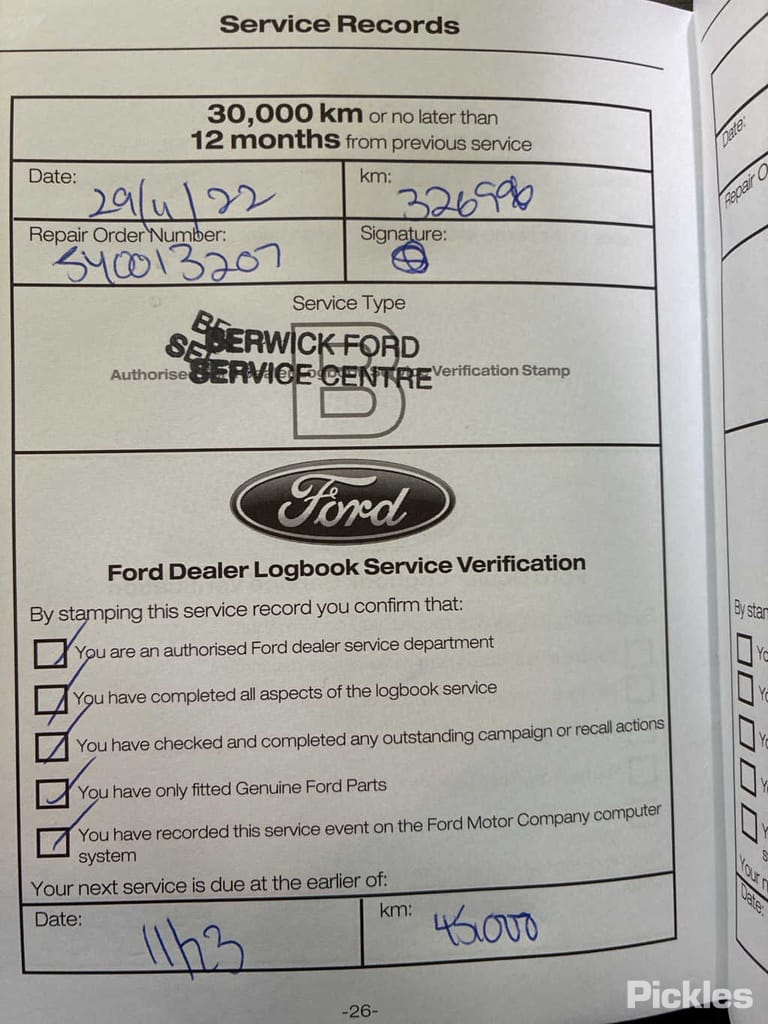 Service Records
30,000 km or no later than
12 months from previous service
Date:
29/11/22
km:
Repair Order Number:
540013207
Signature:
Service Type
B
BERWICK FORD
SERVICE CENTRE
Authorise Verification Stamp
Ford
Ford Dealer Logbook Service Verification
By stamping this service record you confirm that:
You are an authorised Ford dealer service department
You have completed all aspects of the logbook service
You have checked and completed any outstanding campaign or recall actions
You have only fitted Genuine Ford Parts
You have recorded this service event on the Ford Motor Company computer
system
Your next service is due at the earlier of:
Date:
11/23
km:
45,000
-26-
Date:
Repair O
By stan
Yo
Yo
Yo
Y
Y
s
Your n
Date:
Pickles